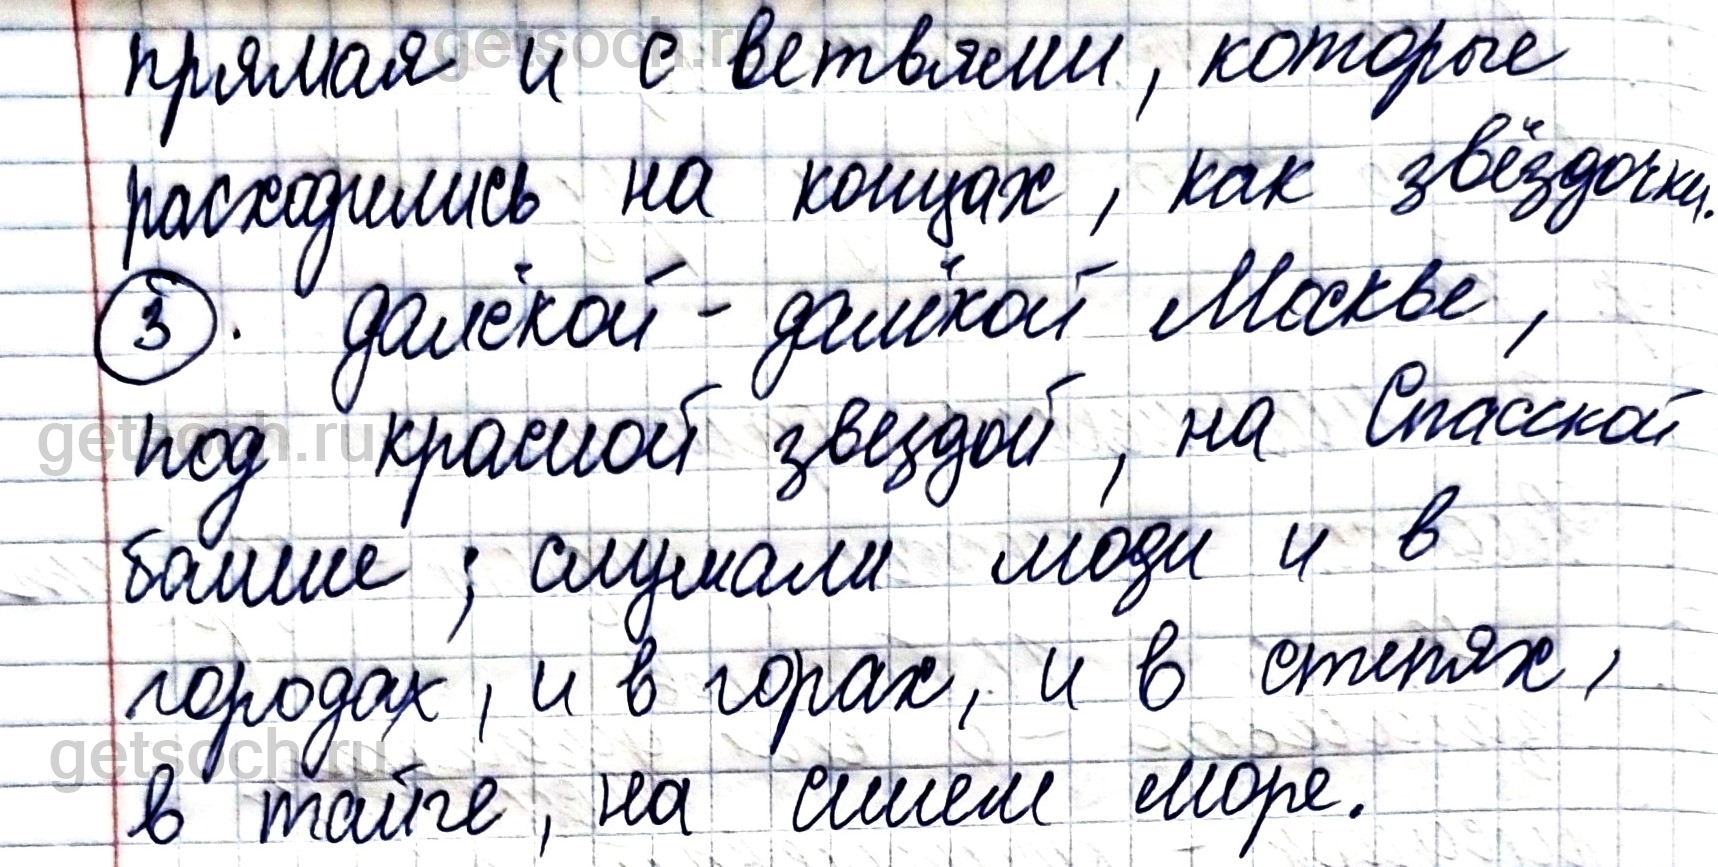 прямая и с ветвями, которые
расходились на концах, как звёздочки.
3. далёкой - далёкой Москве,
под красной звездой, на Спасской
башне; слушали люди и в
городах, и в горах, и в степях,
в тайге, на синем море.
getsoch.ru
getsoch.ru
getsoch.ru